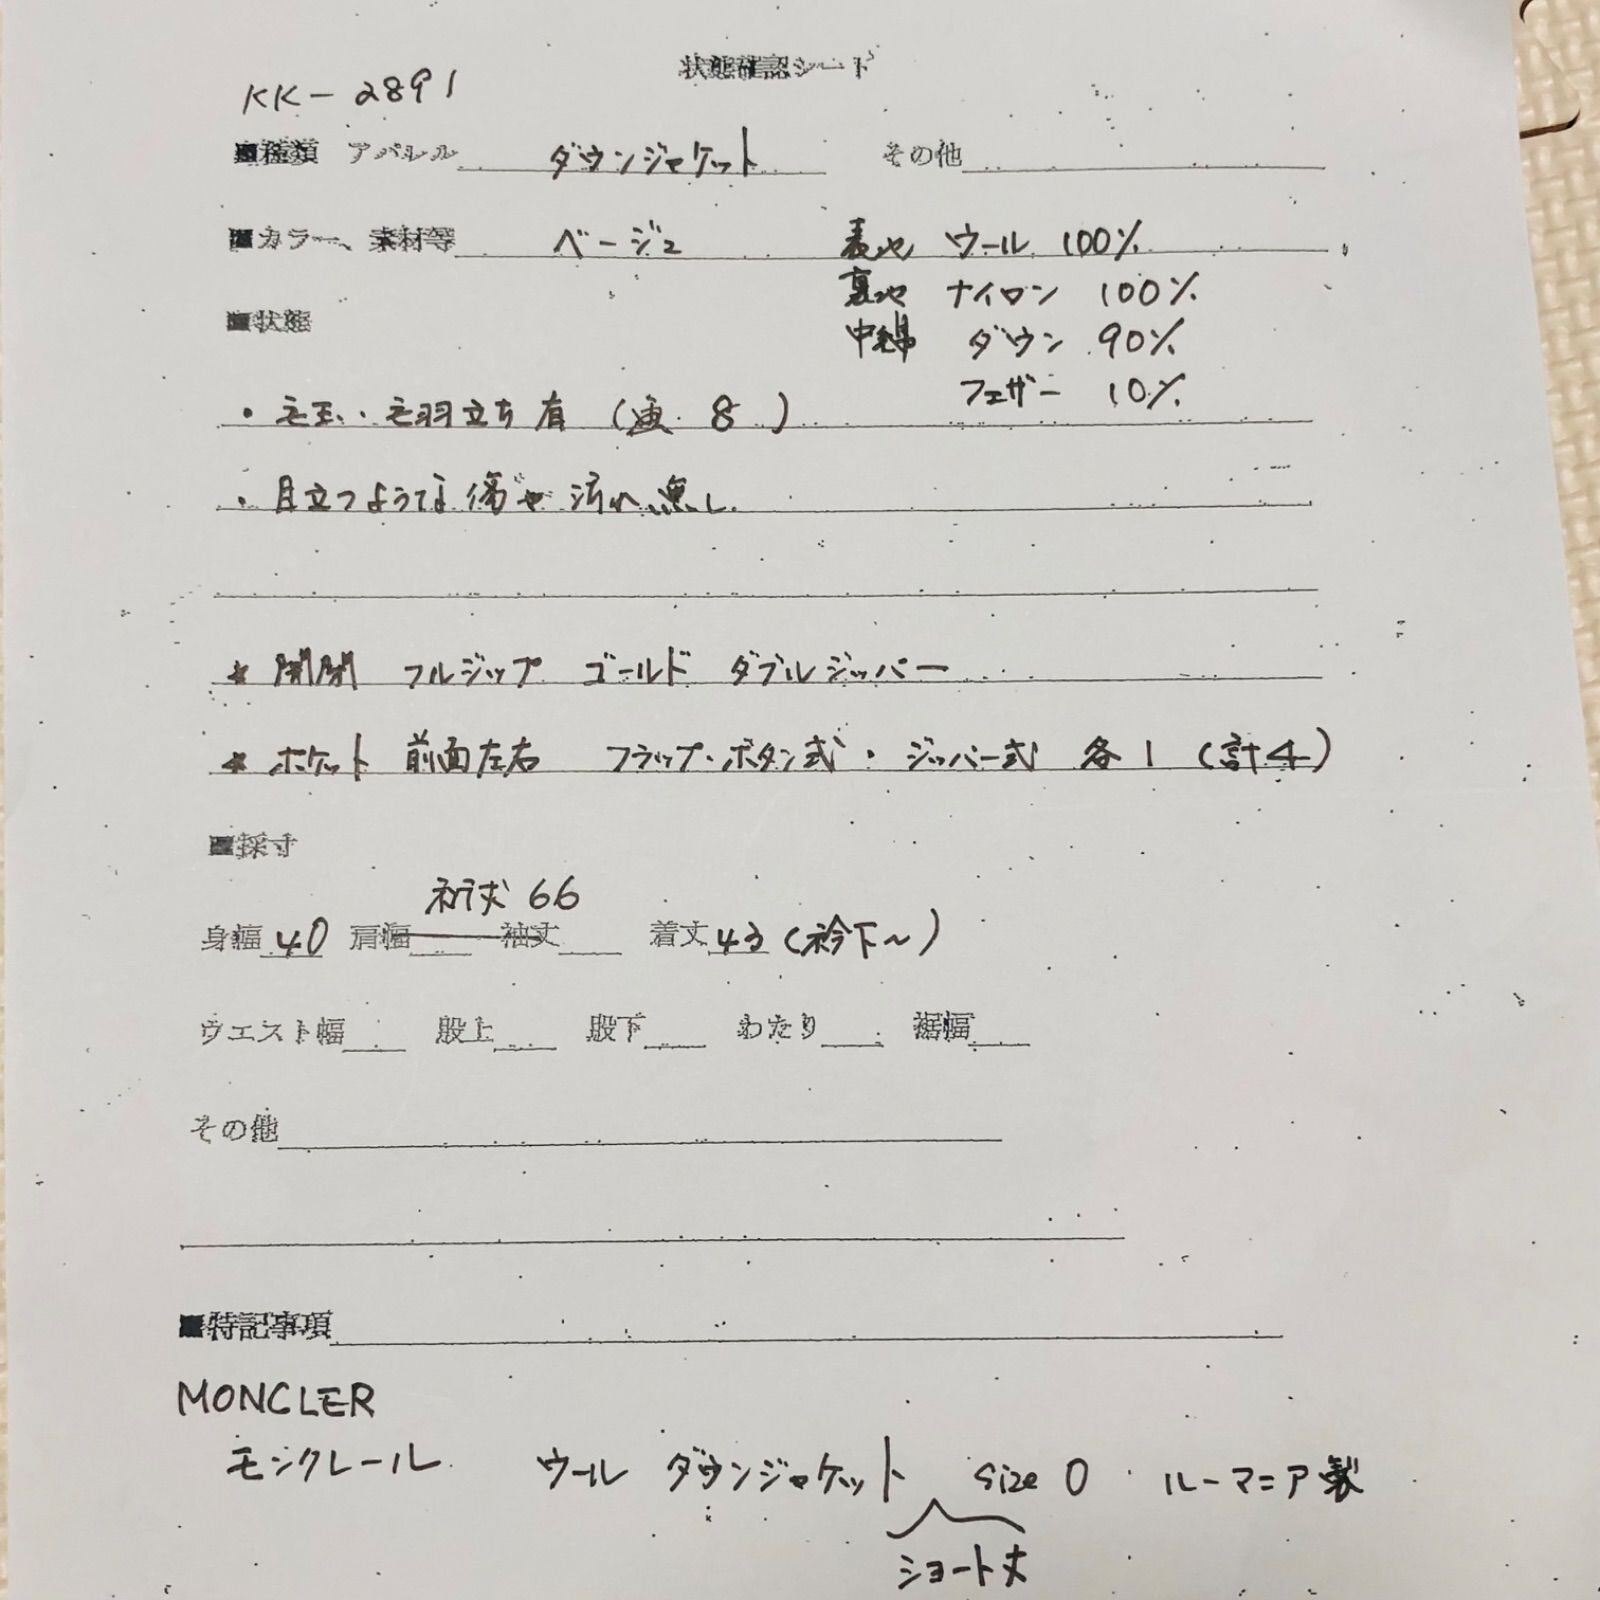 状態確認シート
KK-2891
■種類 アパレル ダウンジャケット その他
■カラー、素材等 ベージュ 表地 ウール 100%
裏地 ナイロン 100%
■状態
中綿 ダウン 90%
フェザー 10%
・毛玉・毛羽立ち有 ( 8 )
・目立つような傷や汚れ無し
* 開閉 フルジップ ゴールド ダブルジッパー
* ポケット 前面左右 フラップ・ボタン式・ジッパー式 各1 (計4)
■採寸
裄丈 66
身幅 40 肩幅 袖丈 着丈 43 (衿下~)
ウエスト幅 股上 股下 わたり 裾幅
その他
■特記事項
MONCLER
モンクレール ウール ダウンジャケット size 0 ルーマニア製
ショート丈